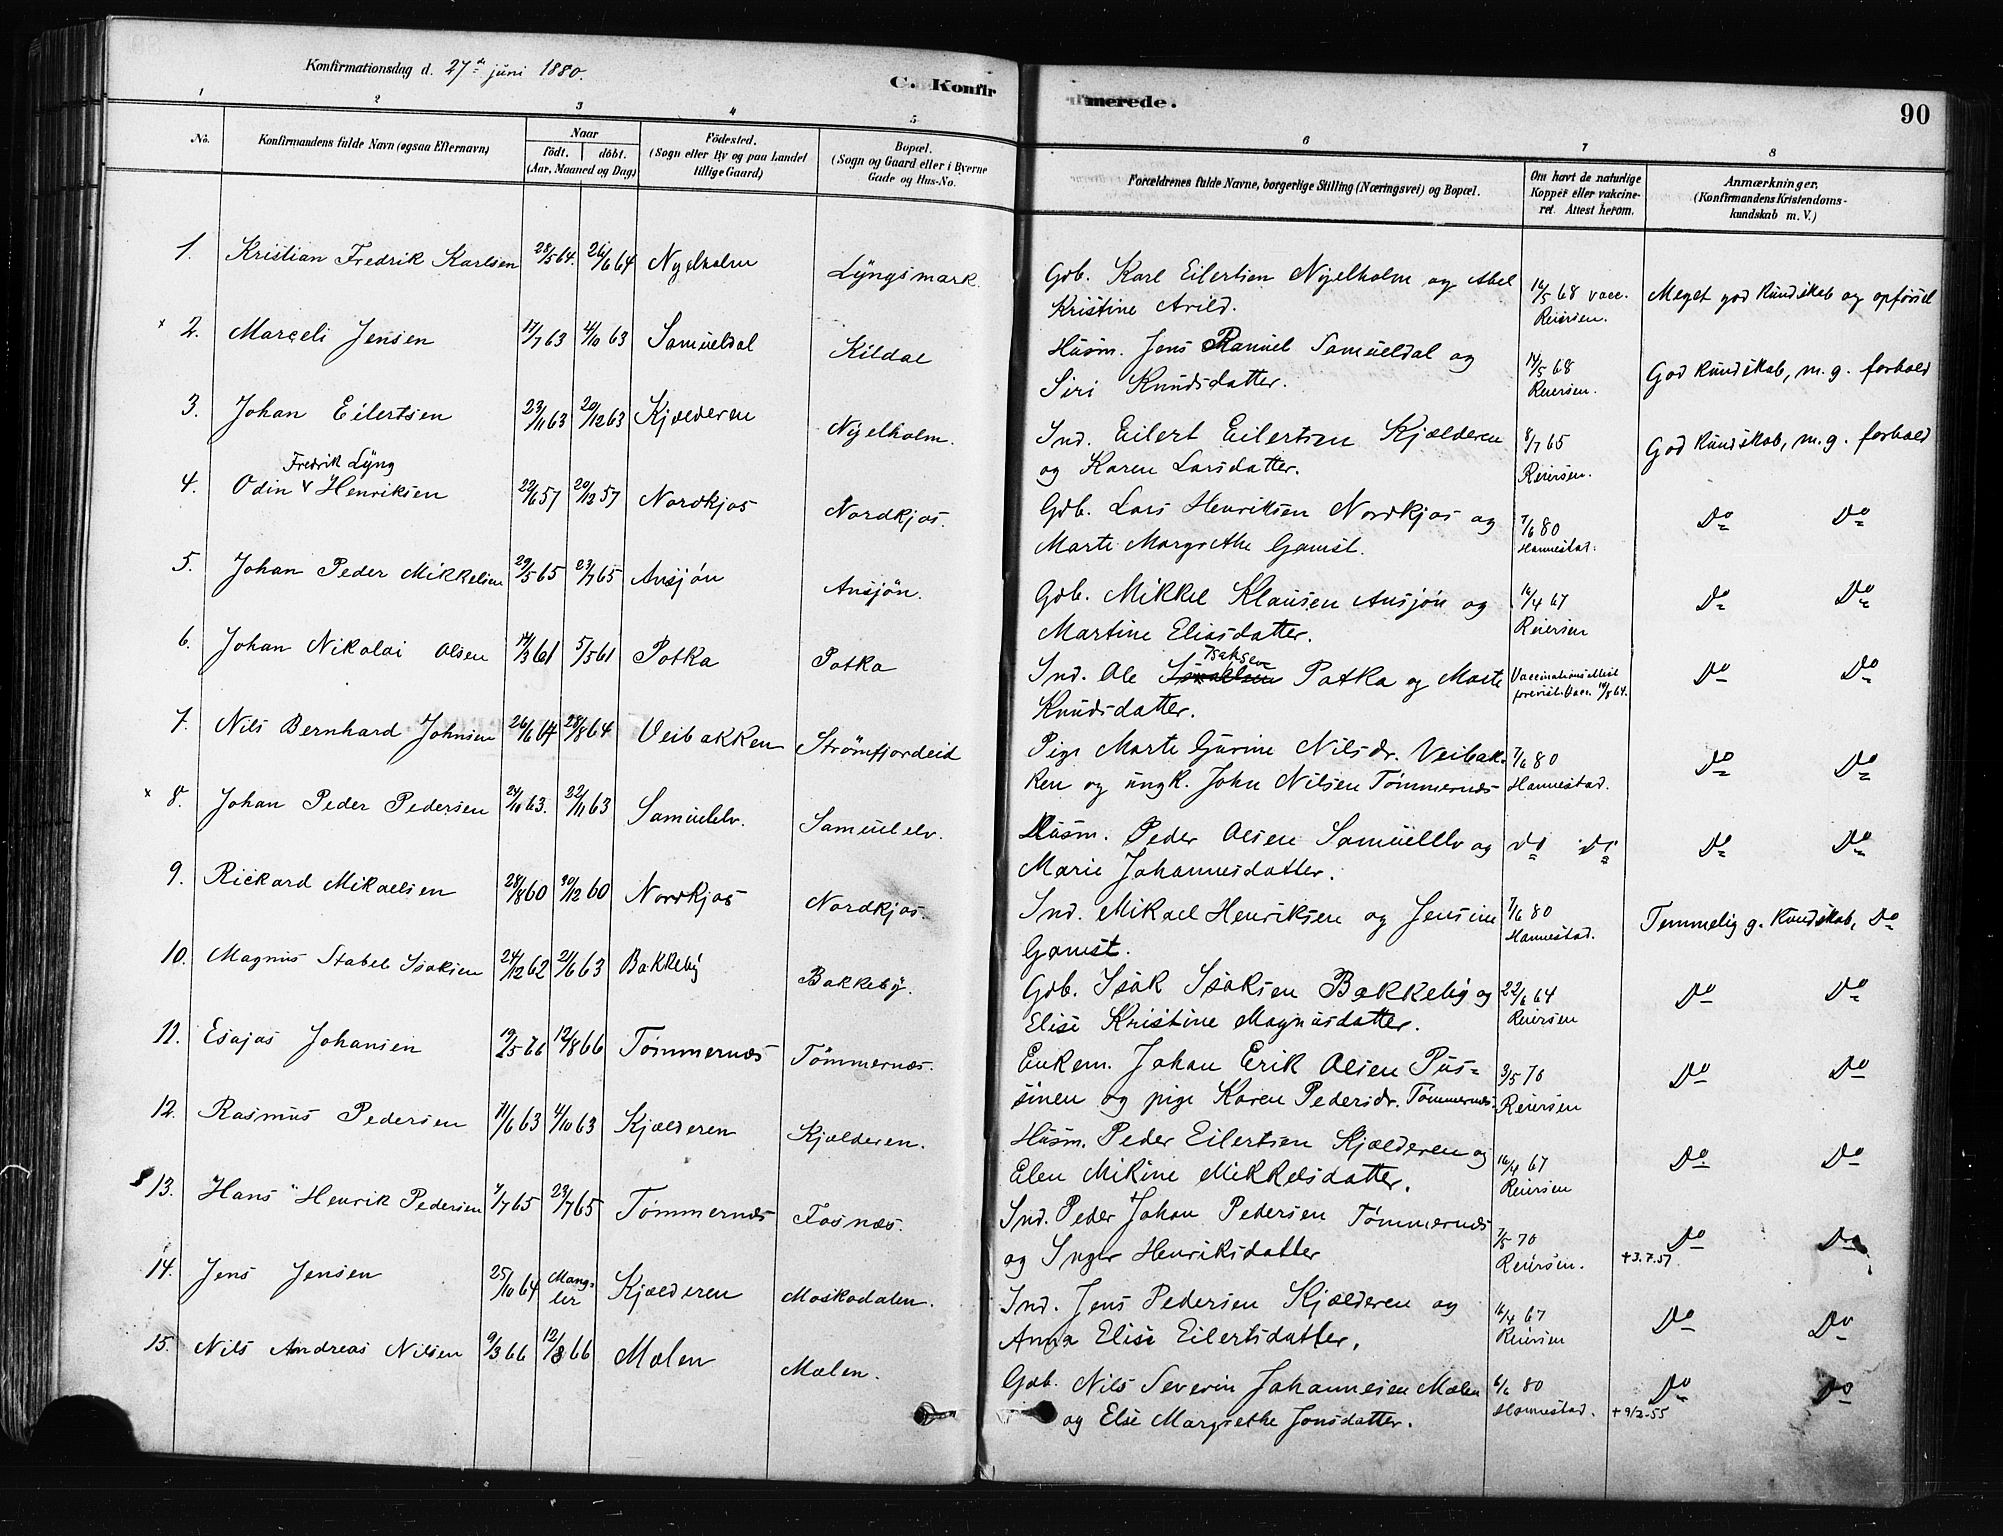 Konfirmationsdag d. 27de juni 1880.
C. Konfir merede.
90
1 2 3 4 5 6 7 8
No.
Konfirmandens fulde Navn (ogsaa Efternavn)
Naar
födt. | döbt.
(Aar, Maaned og Dag)
Födested.
(Sogn eller By og paa Landet
tillige Gaard)
Bopæl.
(Sogn og Gaard eller i Byerne
Gade og Hus-No.
Forældrenes fulde Navne, borgerlige Stilling (Næringsvei) og Bopæl.
Om havt de naturlige
Kopper eller vakcine-
ret. Attest herom.
Anmærkninger.
(Konfirmandens Kristendoms-
kundskab m. V.)
1. Kristian Fredrik Karlsen 28/5 64. 26/6 64 Nyelholm Lyngsmark. Gdb. Karl Eilertsen Nyelholm og Abel 14/5 68 vacc. Meget god Kundskab og opförsel
Kristine Arild. Reiersen.
x 2. Marceli Jensen 17/7 63 4/10 63 Samueldal Kildal Husm. Jens Ranuel Samueldal og 14/5 68 God Kundskab, m. g. forhold
Siri Knudsdatter. Reiersen.
3. Johan Eilertsen 23/11 63 20/12 63 Kjælderen Nyelholm. Ind. Eilert Eilertsen Kjælderen 8/7 65 God Kundskab, m. g. forhold
og Karen Larsdatter. Reiersen.
Fredrik Lyng
4. Odin v Henriksen 22/6 57 20/12 57 Nordkjos Nordkjos. Gdb. Lars Henriksen Nordkjos og 7/6 80 Do Do
Marte Margrethe Gamst. Hannestad.
5. Johan Peder Mikkelsen 29/5 65 23/7 65 Ansjön Ansjön. Gdb. Mikkel Klausen Ansjön og 14/4 67 Do Do
Martine Eliasdatter. Reiersen
6. Johan Nikolai Olsen 14/3 61 5/5 61 Potka Potka Ind. Ole Isaksen Potka og Marte Vaccinationsattest Do Do
Knudsdatter. forevist. Vacc. 14/8 64.
7. Nils Bernhard Johnsen 26/6 64 28/8 64 Veibakken Strömfjordeid Pige Marte Gurine Nilsdr. Veibak- 7/6 80 Do Do
ken og ungk. John Nilsen Tömmernes Hannestad.
x 8. Johan Peder Pedersen 24/10 63. 22/11 63 Samuelelv. Samuelelv. Husm. Peder Olsen Samuelelv og Do Do Do Do
Marie Johannesdatter.
9. Rickard Mikaelsen 28/8 60 30/12 60 Nordkjos Nordkjos. Ind. Mikael Henriksen og Jensine 7/6 80 Temmelig g. Kundskab, Do
Gamst. Hannestad.
10. Magnus Stabel Isaksen 24/12 62 21/6 63 Bakkeby Bakkeby. Gdb. Isak Isaksen Bakkeby og 22/6 64 Do Do
Elise Kristine Magnusdatter. Reiersen
11. Esajas Johansen 19/5 66 12/8 66 Tömmernæs Tömmernæs. Enkem. Johan Erik Olsen Pus- 3/5 70 Do Do
sinen og pige Karen Pedersdr. Tömmernæs. Reiersen
12. Rasmus Pedersen 11/6 63 4/10 63 Kjælderen Kjælderen. Husm. Peder Eilertsen Kjælderen og 14/4 67 Do Do
Elen Mikine Mikkelsdatter. Reiersen
13. Hans Henrik Pedersen 7/7 65 23/7 65 Tömmernæs Fosnæs. Ind. Peder Johan Pedersen Tömmernæs 7/5 70 Do Do
og Inger Henriksdatter Reiersen. +3.7.57
14. Jens Jensen 25/10 64 Mang-
ler Kjælderen Moskodalen. Ind. Jens Pedersen Kjælderen og 14/4 67 Do Do
Anna Elise Eilertsdatter. Reiersen
15. Nils Andreas Nilsen 9/3 66 12/8 66 Mælen Mælen. Gdb. Nils Severin Johannesen Mælen 6/6 80 Do Do
og Else Margrethe Jonsdatter. Hannestad. +9/2-55